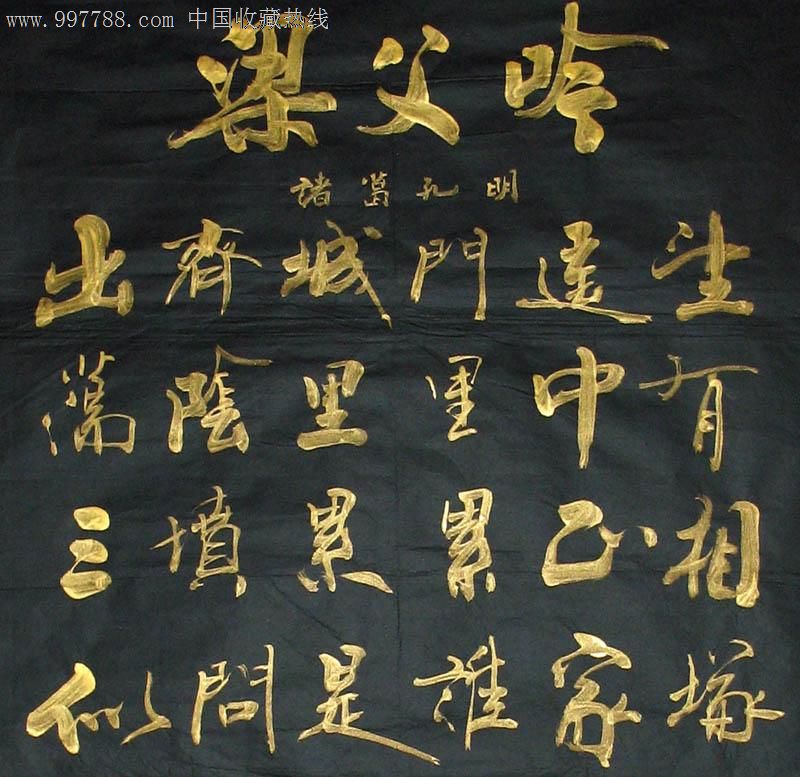 www.997788.com 中国收藏热线
梁父吟
諸葛孔明
出齊城門遥望
蕩陰里里中有
三墳累累正相
似問是誰家塚